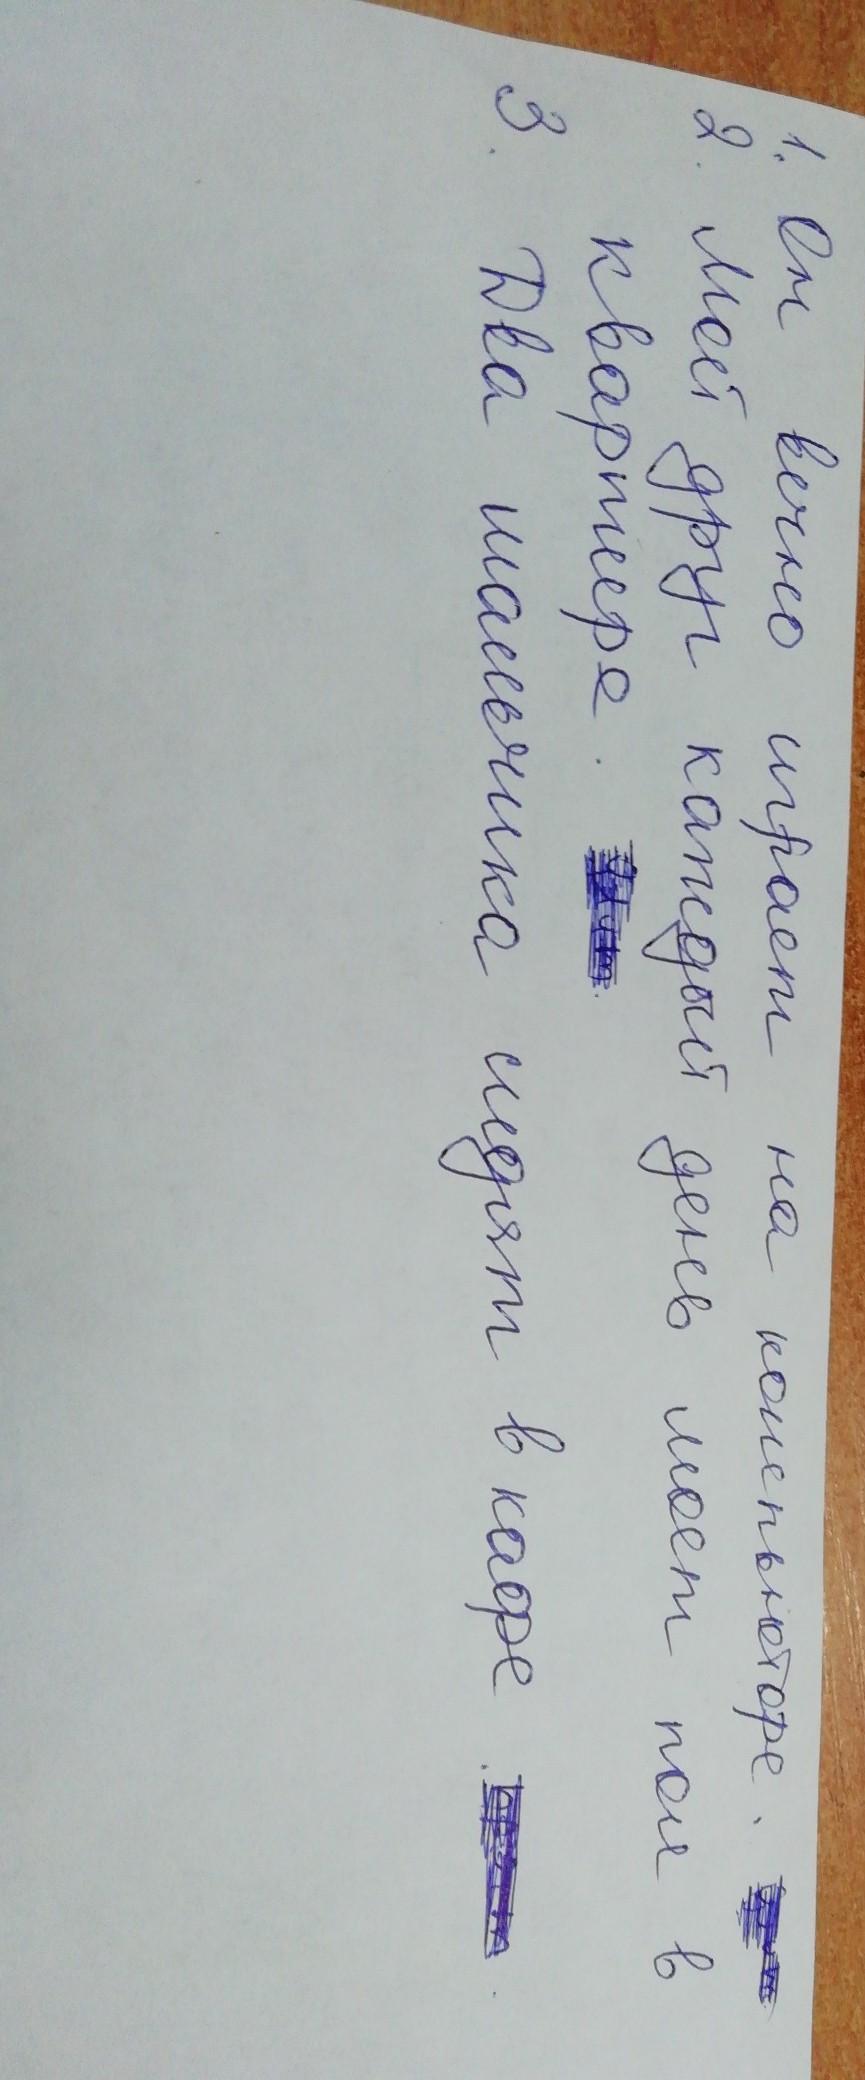 1. Он вечно играет на компьютере.
2. Мой друг каждый день моет пол в
квартире.
3. Два мальчика идят в кафе.